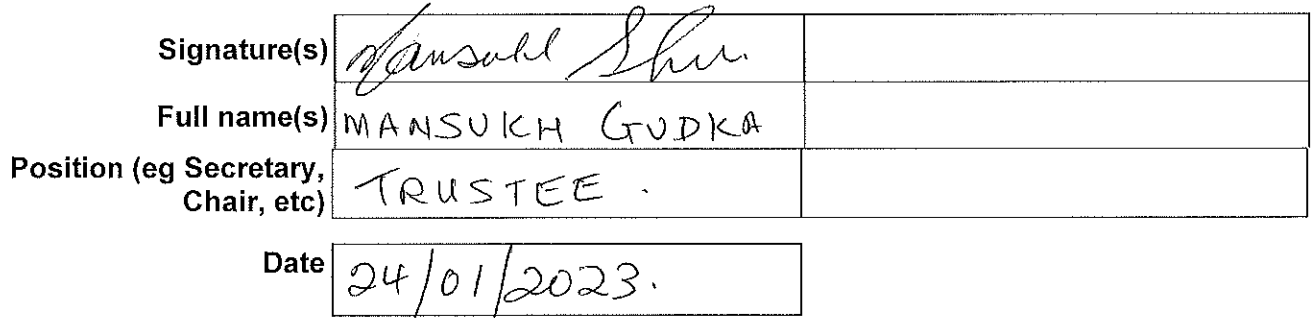 Signature(s) Mansukh
Full name(s) MANSUKH GUDKA
Position (eg Secretary,
Chair, etc) TRUSTEE .
Date 24/01/2023.